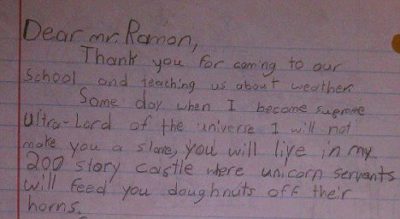 Dear mr. Ramon,
Thank you for coming to our
School and teaching us about weather.
Some day when I become supreme
Ultra-Lord of the universe I will not
make you a slave, you will live in my
200 story castle where unicorn servants
will feed you doughnuts off their
horns.